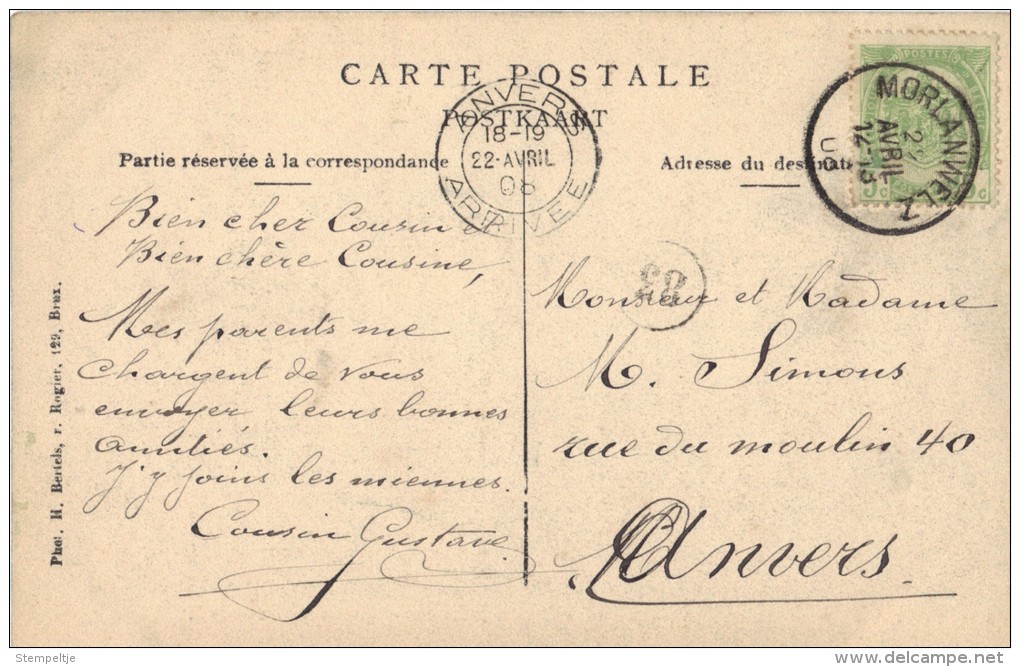 CARTE POSTALE
POSTKAART
Partie réservée à la correspondance
Adresse du destinat
ANVERS
18-19
22-AVRIL
08
ARRIVÉE
POSTES
MORLANWELZ
AVRIL
5c
Bien cher Cousin et
Bien chère Cousine,
Mes parents me
chargent de vous
envoyer leurs bonnes
amitiés.
J'y joins les miennes.
Cousin Gustave
Monsieur et Madame
M. Simons
rue du moulin 40
Anvers.
Phot. H. Bertels, r. Rogier, 129, Brux.
Stempeltje